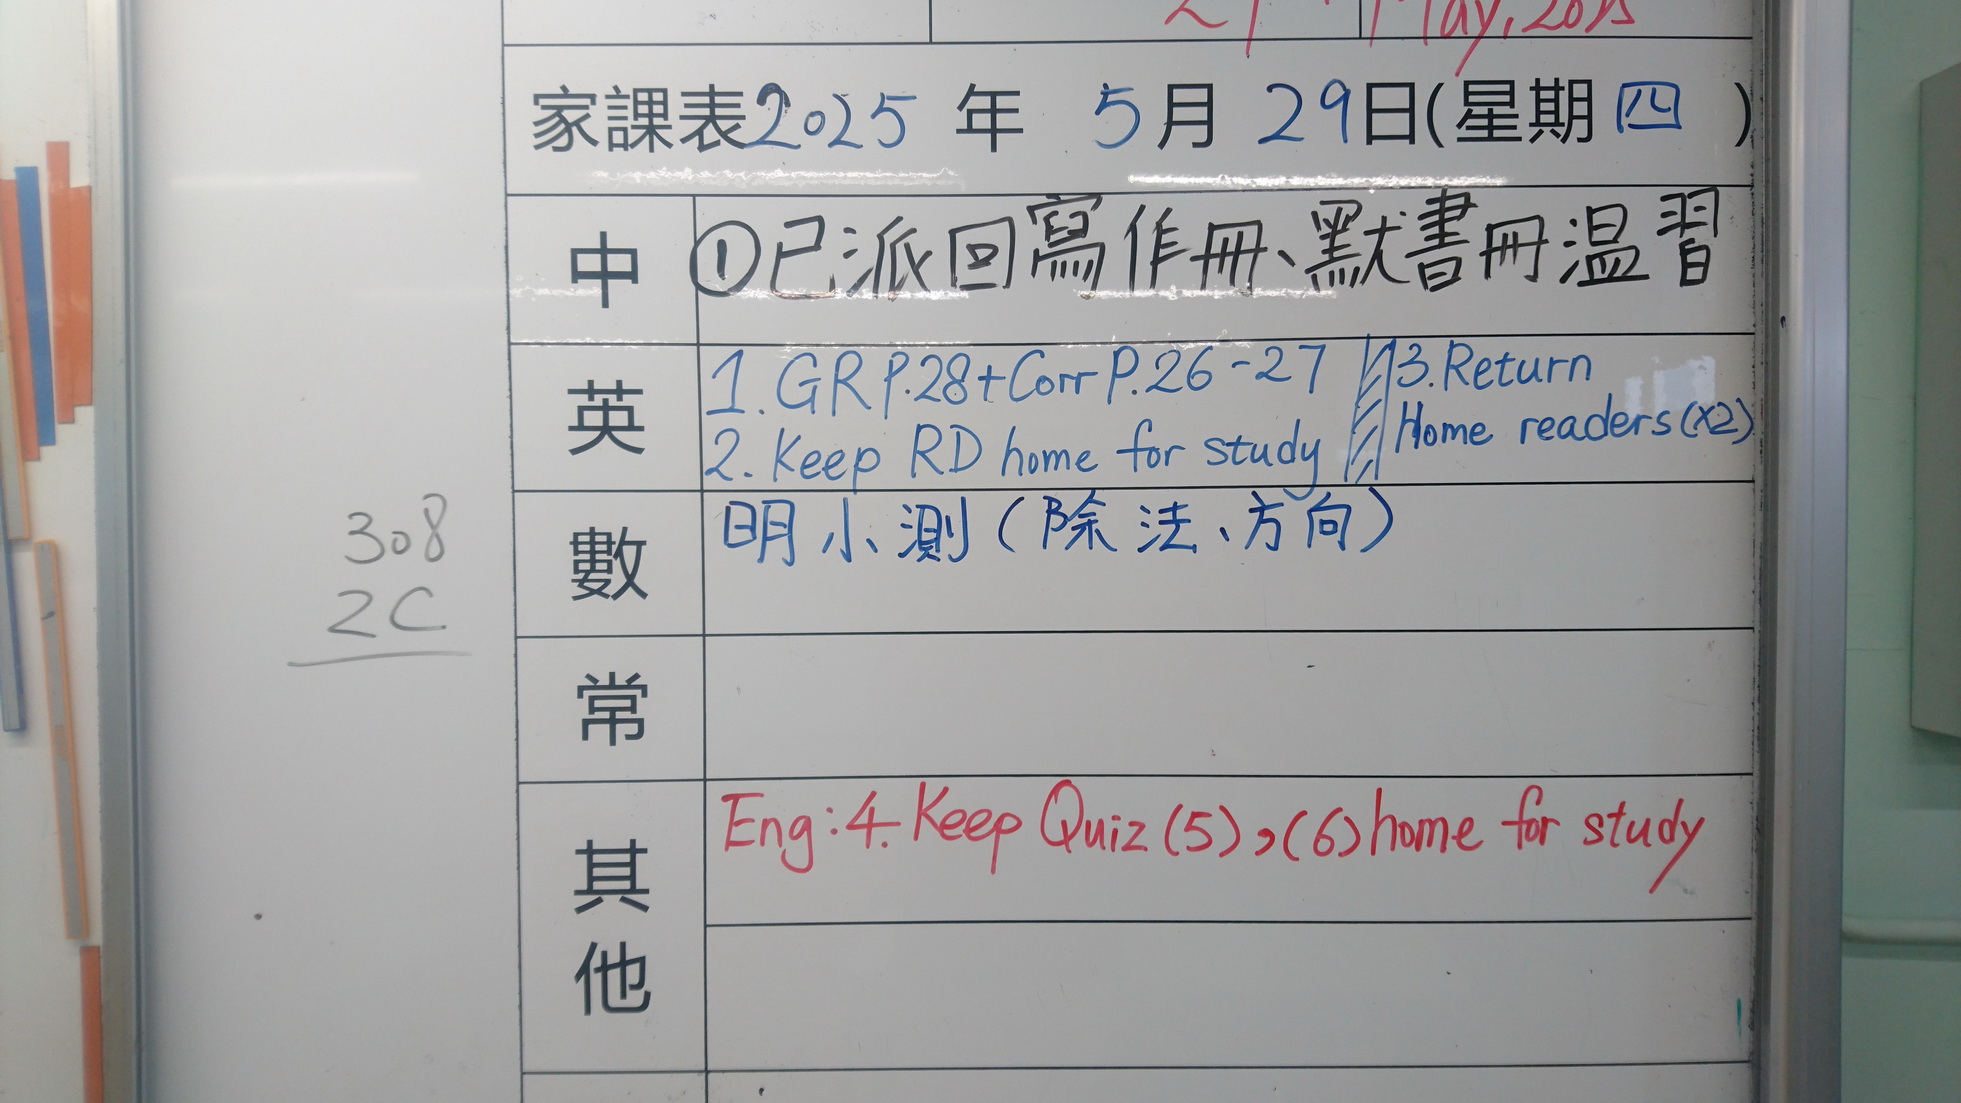 29 May, 2025
家課表2025 年 5月 29日(星期 四 )
中 ①已派回寫作冊、默書冊温習
英 1. GR P.28+Corr P.26-27
2. Keep RD home for study
3. Return
Home readers (x2)
數 明小測(除法、方向)
常
其他 Eng: 4. Keep Quiz (5), (6) home for study
308
2C